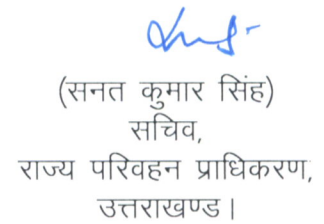 (सनत कुमार सिंह)
सचिव,
राज्य परिवहन प्राधिकरण,
उत्तराखण्ड।